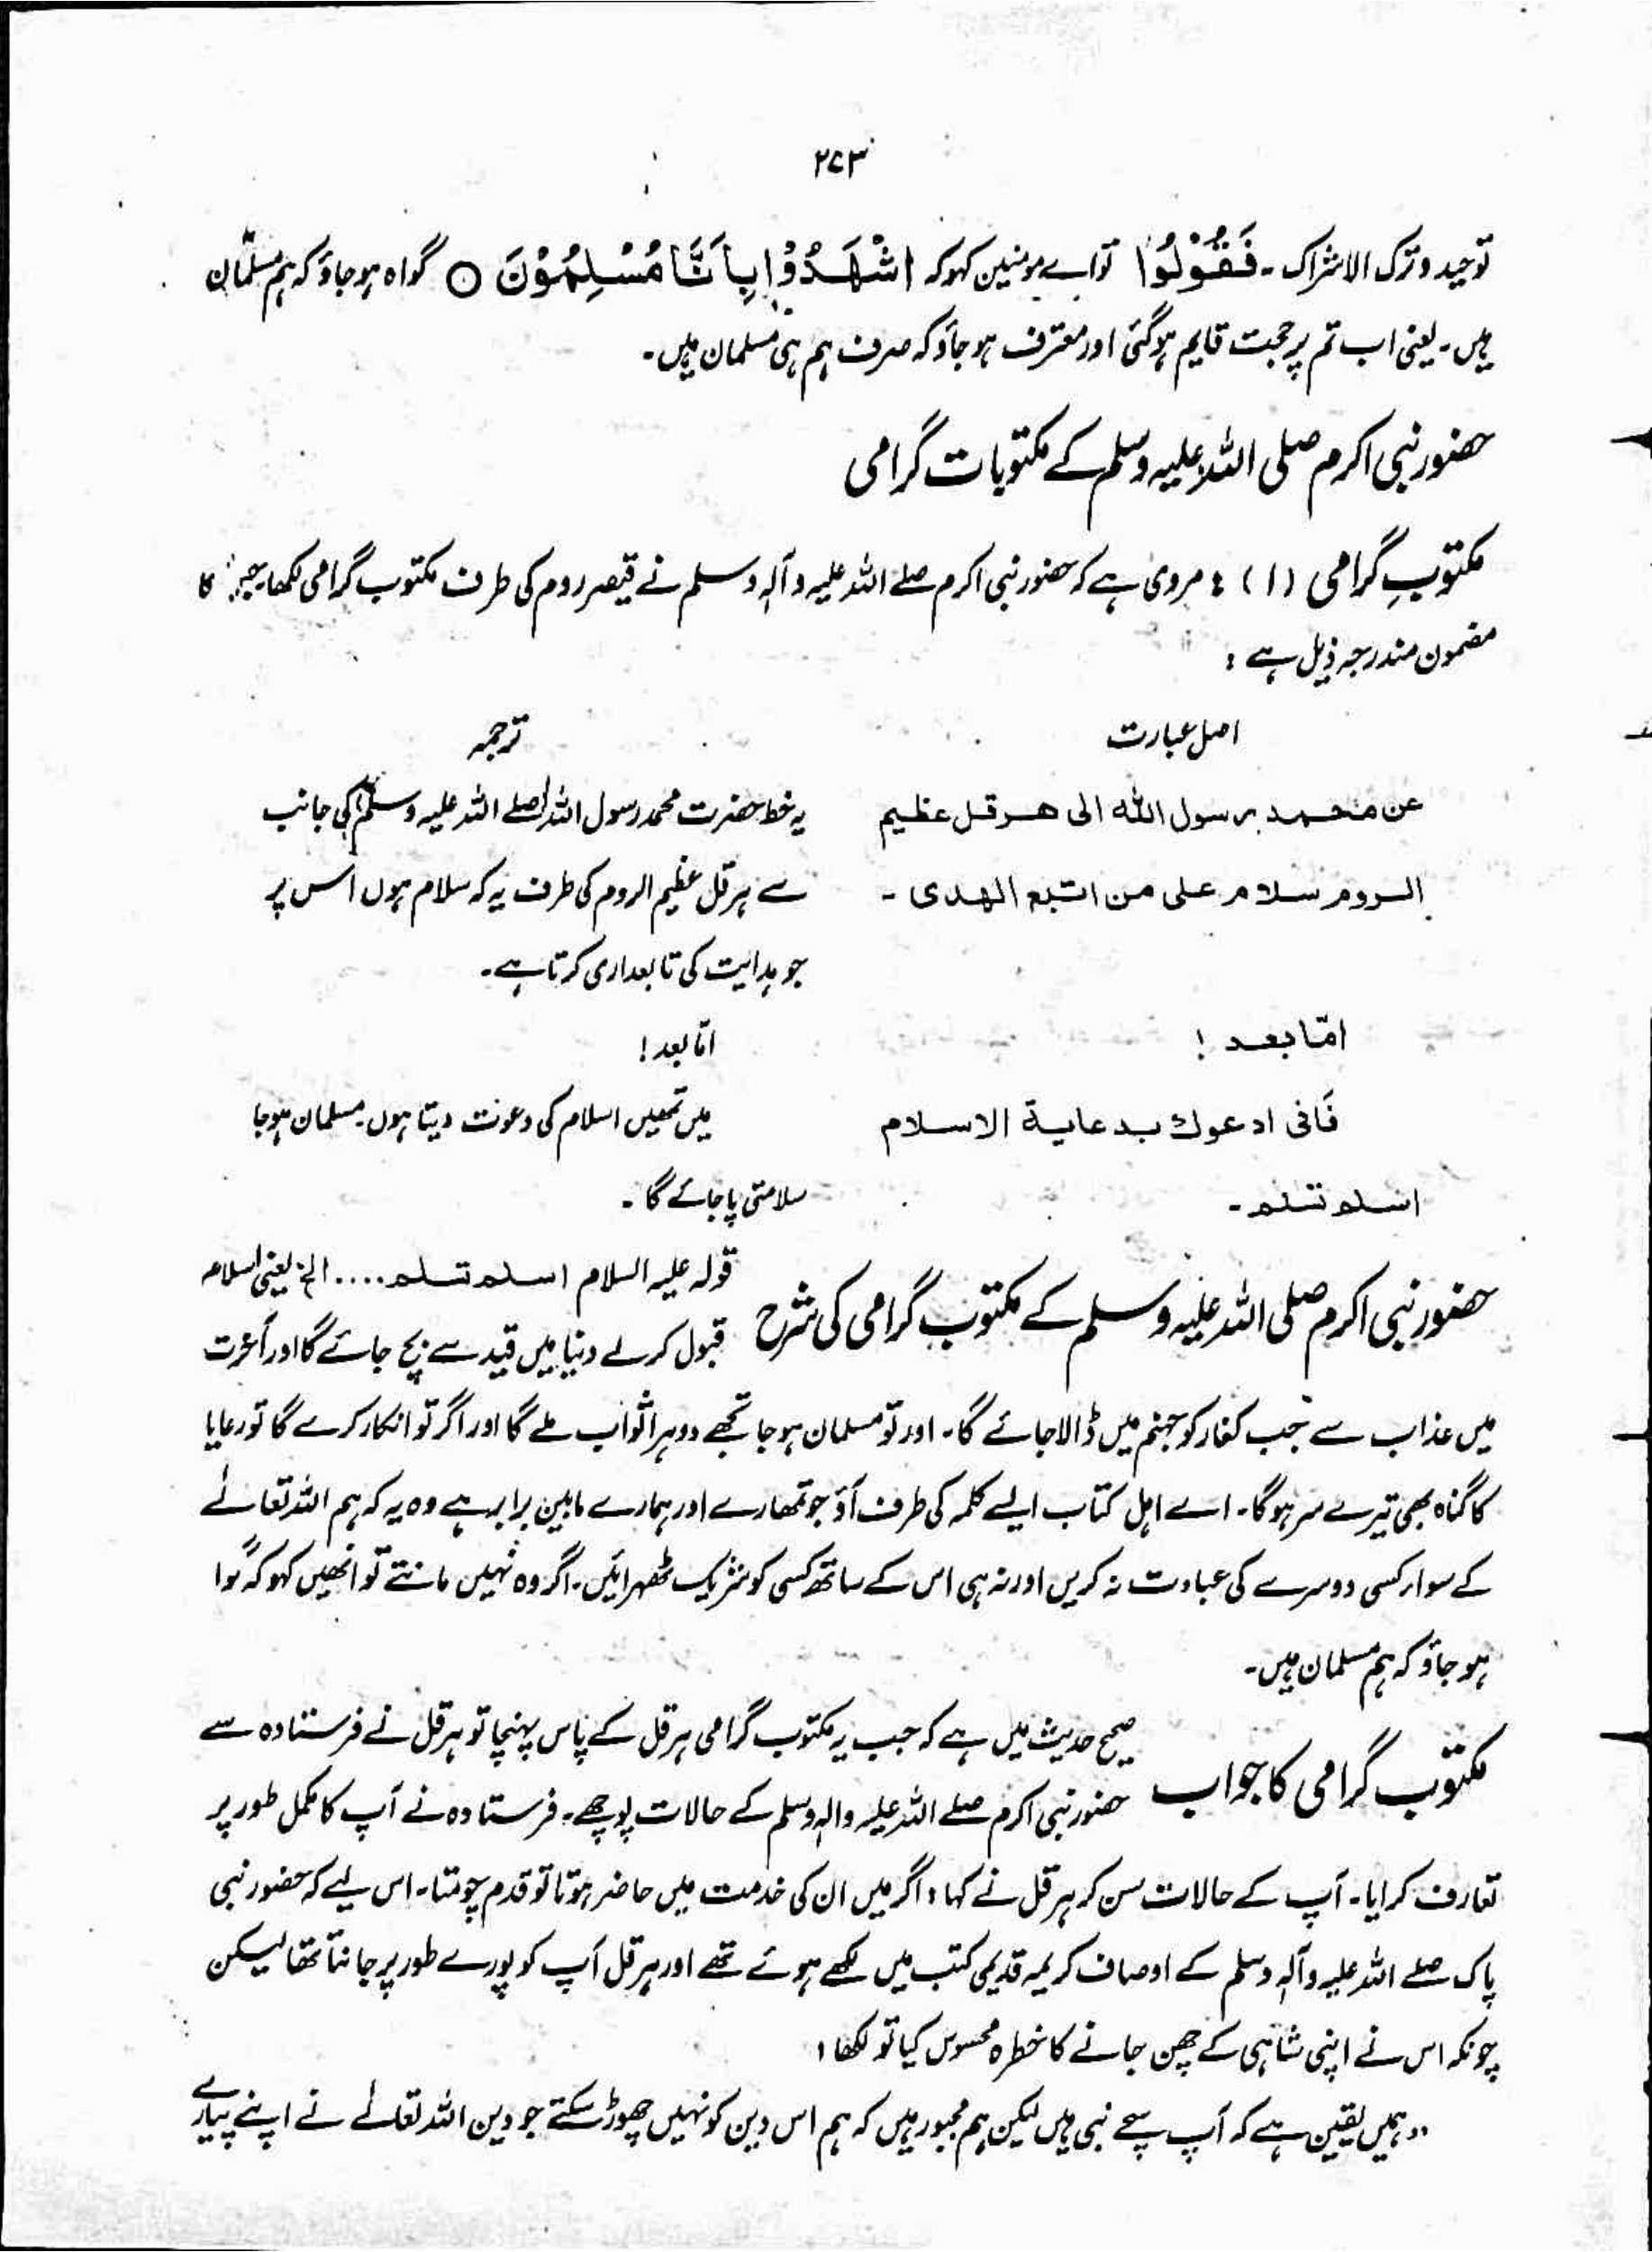 ۲۷۳
توحید و ترک الاشراک ۔ فَقُوْلُوْا تو اے مومنین کہو کہ اشْهَدُوْا بِاَنَّا مُسْلِمُوْنَ ○ گواہ ہو جاؤ کہ ہم مسلمان
ہیں ۔ یعنی اب تم پر حجت قایم ہو گئی اور معترف ہو جاؤ کہ صرف ہم ہی مسلمان ہیں ۔
حضور نبی اکرم صلی اللہ علیہ وسلم کے مکتوبات گرامی
مکتوبِ گرامی (۱) : مروی ہے کہ حضور نبی اکرم صلے اللہ علیہ وآلہ وسلم نے قیصر روم کی طرف مکتوب گرامی لکھا جس کا
مضمون مندرجہ ذیل ہے :
اصل عبارت
ترجمہ
عن محمد رسول الله الى هرقل عظيم
یہ خط حضرت محمد رسول اللہ (صلے اللہ علیہ وسلم) کی جانب
الروم سلام على من اتبع الهدى ۔
سے ہرقل عظیم الروم کی طرف یہ کہ سلام ہوں اس پر
جو ہدایت کی تابعداری کرتا ہے ۔
امّا بعد !
امّا بعد !
فَانى ادعوك بدعاية الاسلام
میں تمھیں اسلام کی دعوت دیتا ہوں ۔ مسلمان ہو جا
اسلم تسلم ۔
سلامتی پا جائے گا ۔
حضور نبی اکرم صلی اللہ علیہ وسلم کے مکتوب گرامی کی شرح
قولہ علیہ السلام اسلم تسلم .... الخ یعنی اسلام
قبول کر لے دنیا میں قید سے بچ جائے گا اور آخرت
میں عذاب سے جب کفار کو جہنم میں ڈالا جائے گا ۔ اور تو مسلمان ہو جا تجھے دوہرا ثواب ملے گا اور اگر تو انکار کرے گا تو رعایا
کا گناہ بھی تیرے سر ہو گا ۔ اے اہل کتاب ایسے کلمہ کی طرف آؤ جو تمھارے اور ہمارے مابین برابر ہے وہ یہ کہ ہم اللہ تعالےٰ
کے سوا کسی دوسرے کی عبادت نہ کریں اور نہ ہی اس کے ساتھ کسی کو شریک ٹھہرائیں ۔ اگر وہ نہیں مانتے تو انھیں کہو کہ گواہ
ہو جاؤ کہ ہم مسلمان ہیں ۔
مکتوب گرامی کا جواب
صحیح حدیث میں ہے کہ جب یہ مکتوب گرامی ہرقل کے پاس پہنچا تو ہرقل نے فرستادہ سے
حضور نبی اکرم صلے اللہ علیہ والہ وسلم کے حالات پوچھے ۔ فرستادہ نے آپ کا مکمل طور پر
تعارف کرایا ۔ آپ کے حالات سن کر ہرقل نے کہا : اگر میں ان کی خدمت میں حاضر ہوتا تو قدم چومتا ۔ اس لیے کہ حضور نبی
پاک صلے اللہ علیہ وآلہ وسلم کے اوصاف کریمہ قدیمی کتب میں لکھے ہوئے تھے اور ہرقل آپ کو پورے طور پر جانتا تھا لیکن
چونکہ اس نے اپنی شاہی کے چھن جانے کا خطرہ محسوس کیا تو لکھا :
"ہمیں یقین ہے کہ آپ سچے نبی ہیں لیکن ہم مجبور ہیں کہ ہم اس دین کو نہیں چھوڑ سکتے جو دین اللہ تعالےٰ نے اپنے پیارے